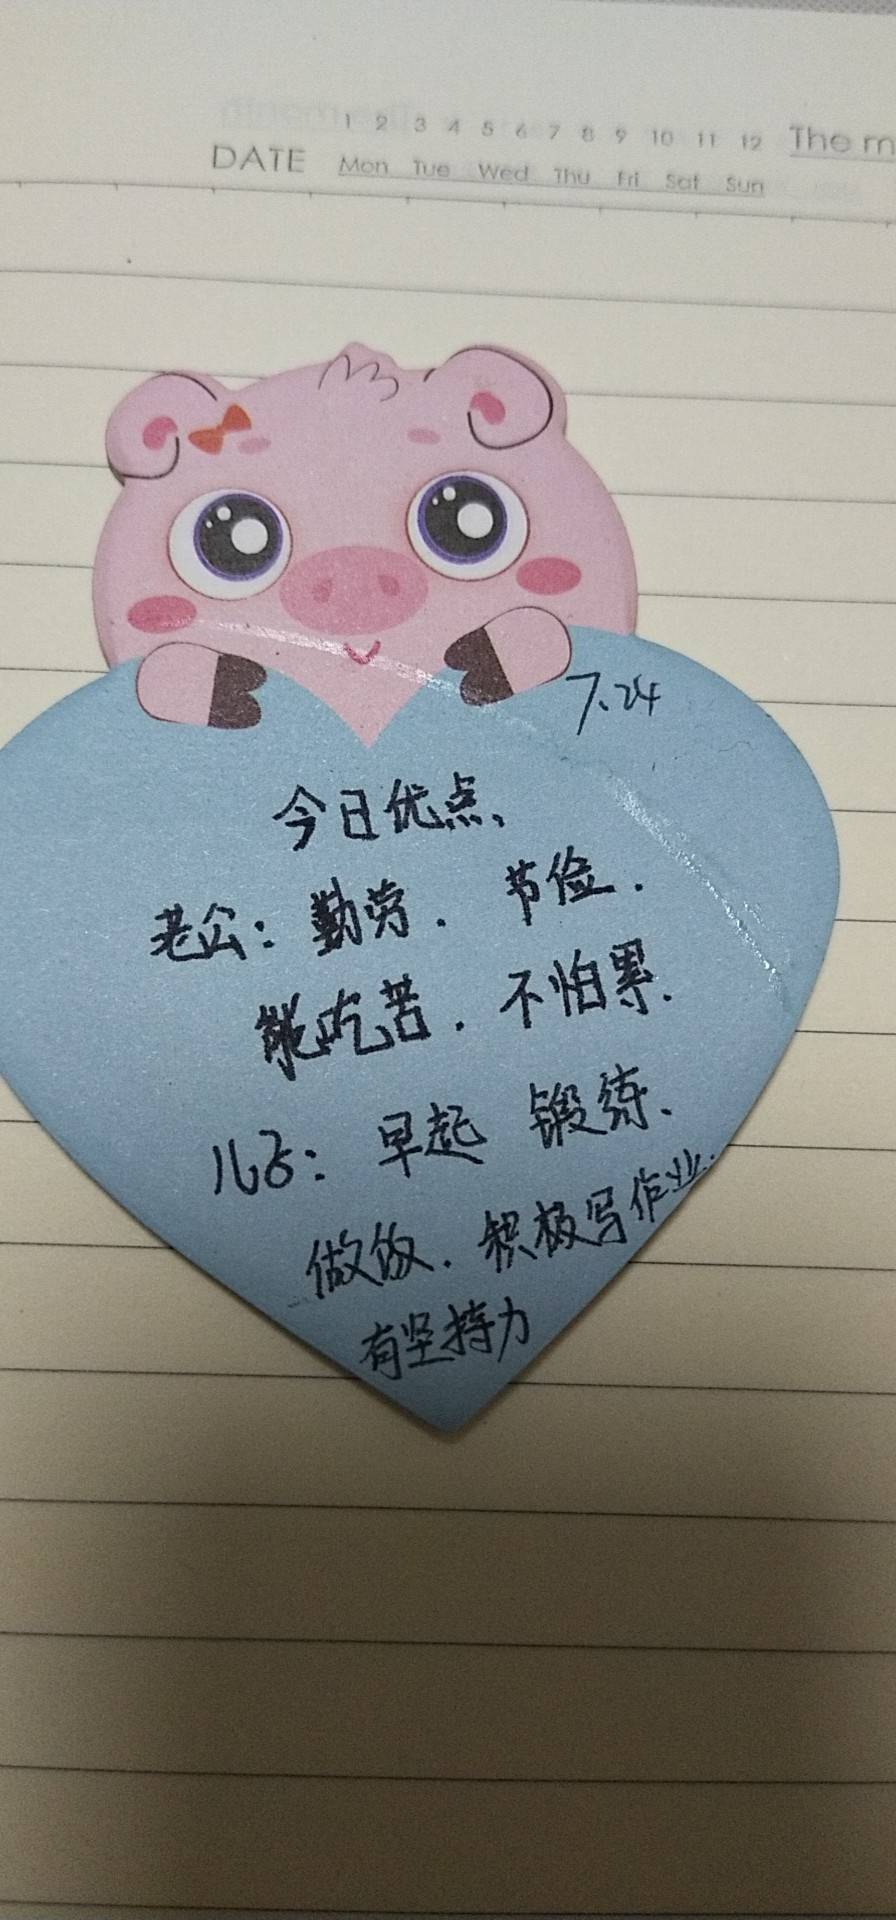 1 2 3 4 5 6 7 8 9 10 11 12 The m
DATE Mon Tue Wed Thu Fri Sat Sun
7.24
今日优点、
老公：勤劳．节俭．
能吃苦．不怕累．
儿子：早起 锻练．
做饭．积极写作业．
有坚持力